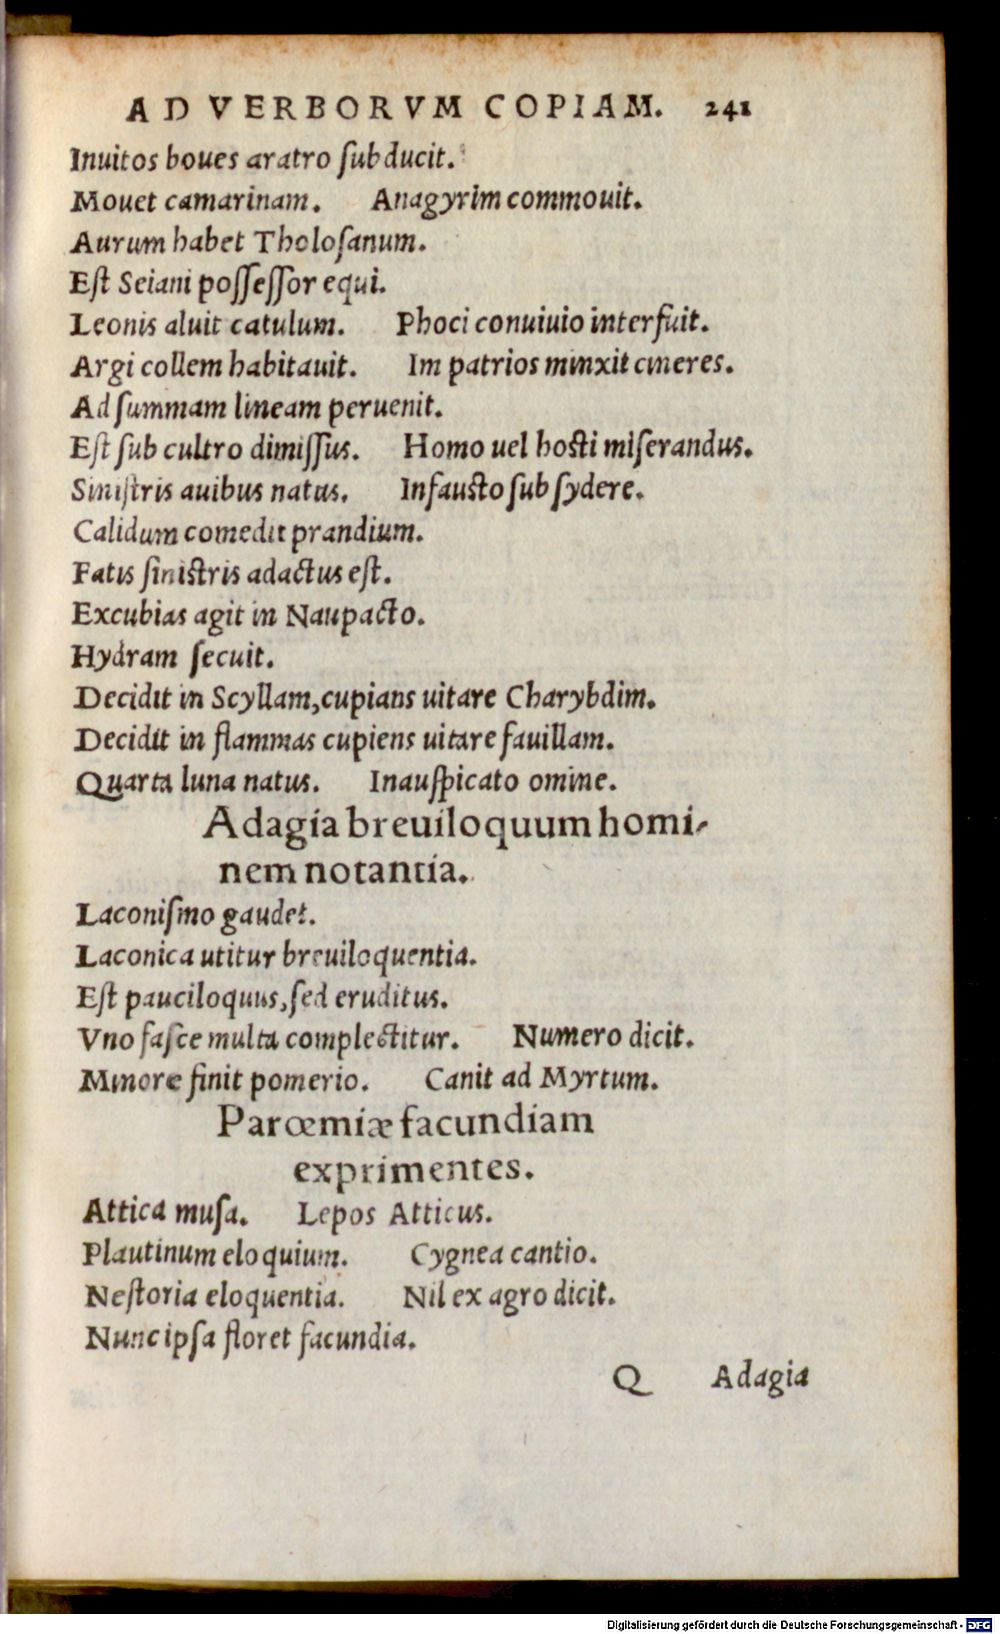 AD VERBORVM COPIAM. 241
Inuitos boues aratro subducit.
Mouet camarinam. Anagyrim commouit.
Aurum habet Tholosanum.
Est Seiani possessor equi.
Leonis aluit catulum. Phoci conuiuio interfuit.
Argi collem habitauit. Im patrios minxit cineres.
Ad summam lineam peruenit.
Est sub cultro dimissus. Homo uel hosti miserandus.
Sinistris auibus natus. Infausto sub sydere.
Calidum comedit prandium.
Fatis sinistris adactus est.
Excubias agit in Naupacto.
Hydram secuit.
Decidit in Scyllam, cupians uitare Charybdim.
Decidit in flammas cupiens uitare fauillam.
Quarta luna natus. Inauspicato omine.
Adagia breuiloquum homi-
nem notantia.
Laconismo gaudet.
Laconica utitur breuiloquentia.
Est pauciloquus, sed eruditus.
Vno fasce multa complectitur. Numero dicit.
Minore finit pomerio. Canit ad Myrtum.
Parœmiæ facundiam
exprimentes.
Attica musa. Lepos Atticus.
Plautinum eloquium. Cygnea cantio.
Nestoria eloquentia. Nil ex agro dicit.
Nunc ipsa floret facundia.
Q Adagia
Digitalisierung gefördert durch die Deutsche Forschungsgemeinschaft - DFG